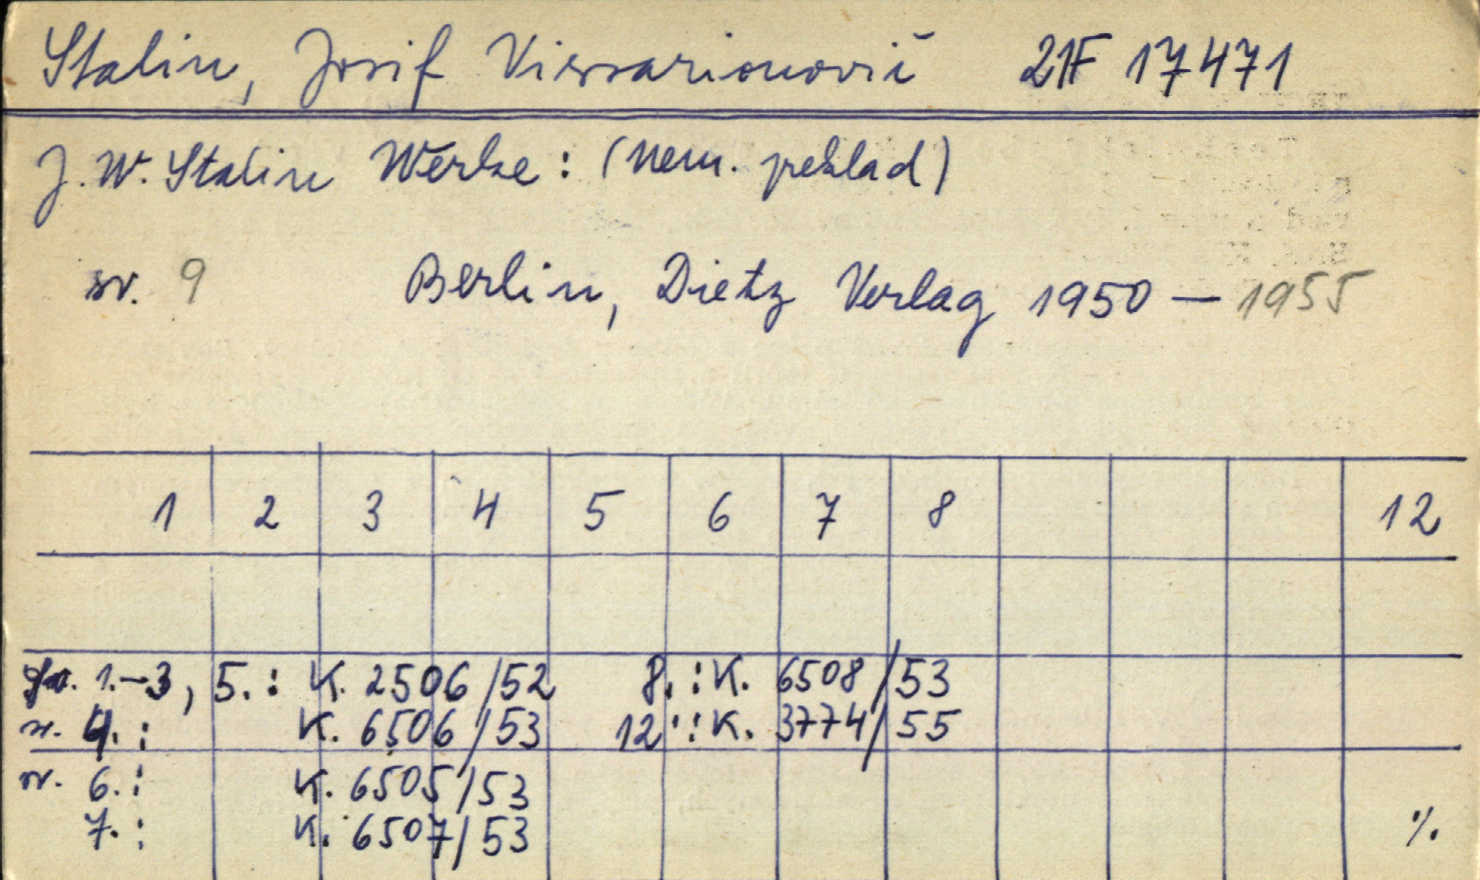 Stalin, Josif Vissarionovič 21F 17471
J. W. Stalin Werke: (nem. peklad)
sv. 9 Berlin, Dietz Verlag 1950 — 1955
1 2 3 4 5 6 7 8 12
sv. 1.-3, 5.: K. 2506/52 8.: K. 6508/53
sv. 4.: K. 6506/53 12.: K. 3774/55
sv. 6.: K. 6505/53
7.: K. 6507/53 ./.